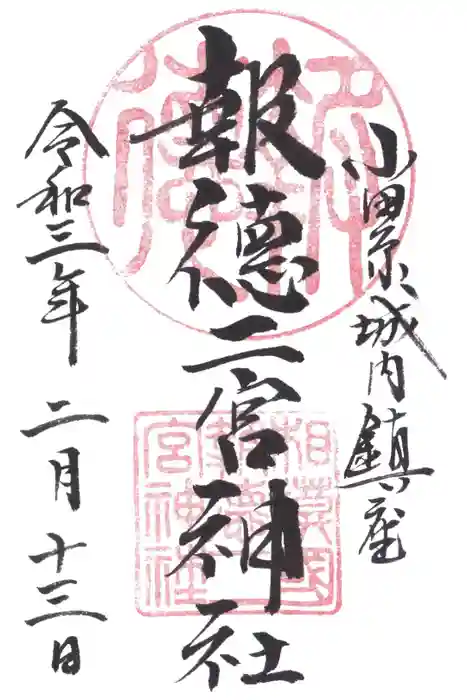 小田原城内鎮座
報徳二宮神社
令和三年 二月十三日
相模国
報徳二
宮神社